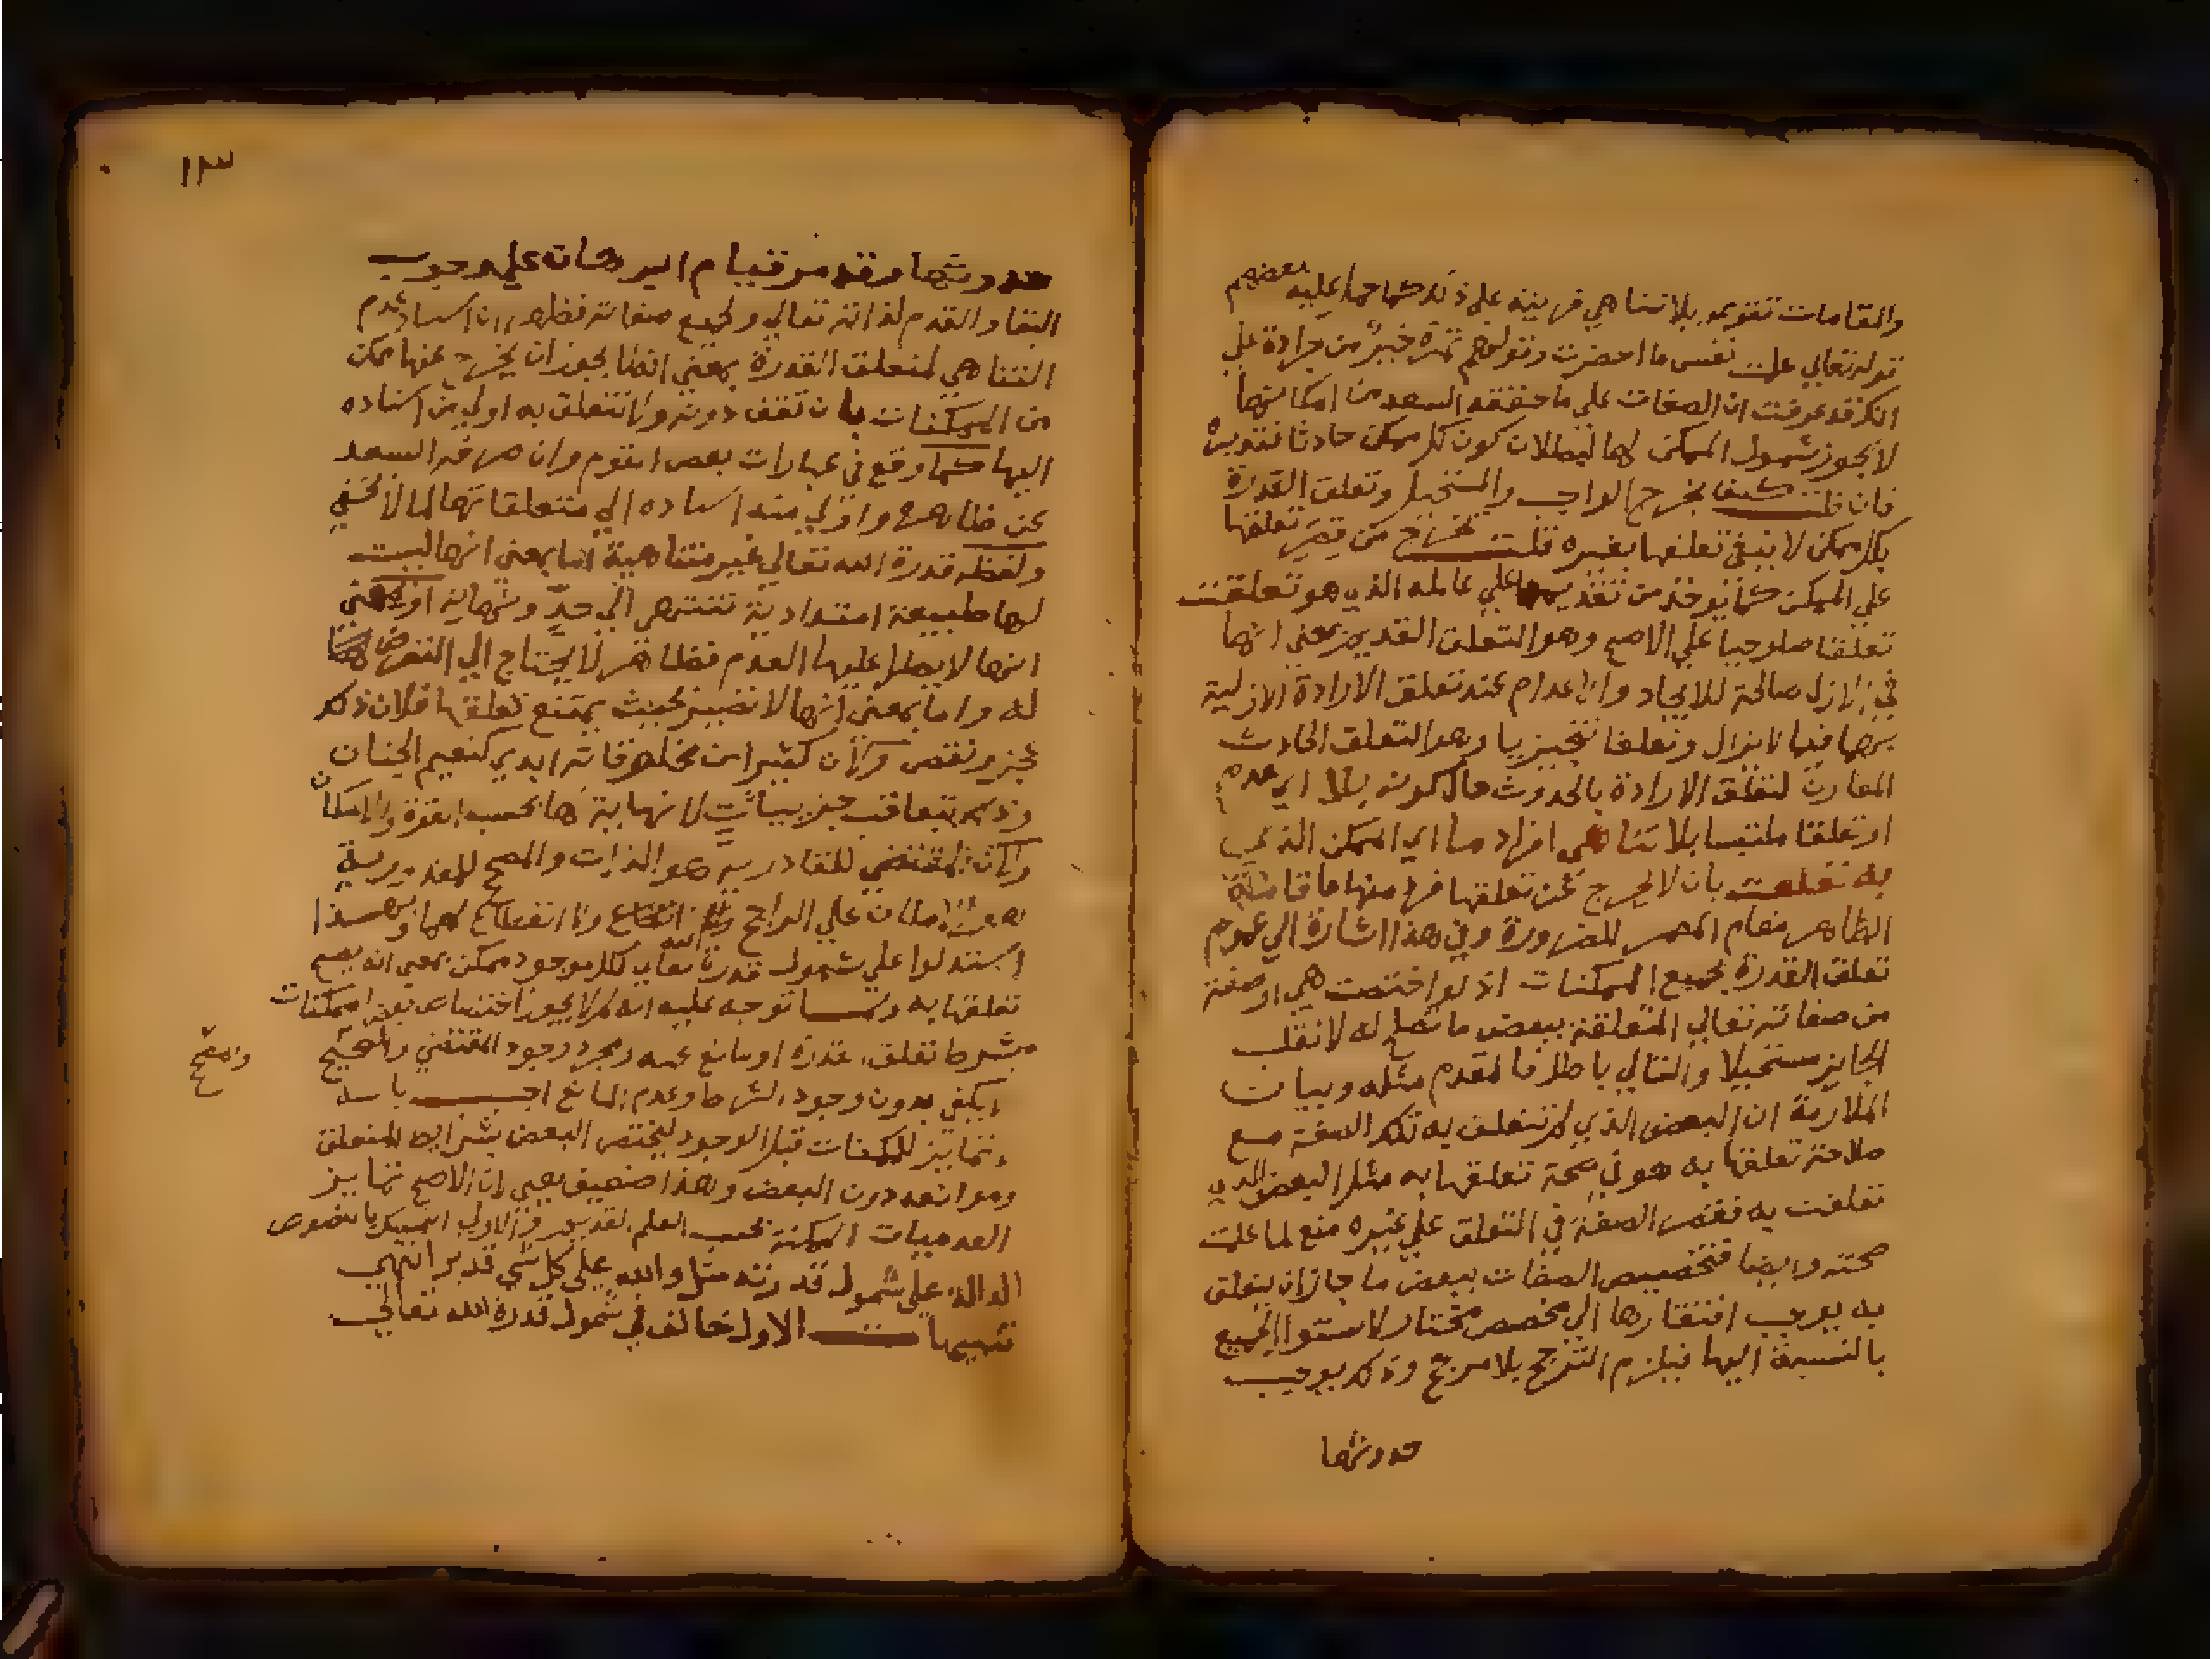 والمقامات تقويه بلا تناهي قرينة على ذلك كما حمل عليه بعضهم
قوله تعالي علمت نفس ما احضرت وقولهم تمرة خير من جرادة علي
انك قد عرفت ان الصفات علي ما حققه السعد من امكانها
لا يجوز شمول الممكن لها لبطلان كون كل ممكن حادثا فتدبره
فان قلت كيف يخرج الواجب والمستحيل وتعلق القدرة
بكل ممكن لا ينفي تعلقها بغيره قلت تخرج من قصر تعلقها
علي الممكن كما يوخذ من تقديمها علي عامله الذي هو تعلقت
تعلقا صلوحيا علي الاصح وهو التعلق القديم بمعني انها
في الازل صالحة للايجاد والاعدام عند تعلق الارادة الازلية
بهما فيما لا يزال وتعلقا تنجيزيا وهو التعلق الحادث
المقارن لتعلق الارادة بالحدوث حال كونه بلا اي عدم
او تعلقا ملتبسا بلا تناهي افراد ما اي الممكن الذي
به تعلقت بان لا يخرج عن تعلقها فرد منها ما قامت
الظاهر مقام المضمر للضرورة وفي هذا اشارة الي عموم
تعلق القدرة بجميع الممكنات اذ لو اختصت هي او صفة
من صفاته تعالي المتعلقة ببعض ما تصلح له لانقلب
الجايز مستحيلا والتالي باطل فالمقدم مثله وبيان
الملازمة ان البعض الذي لم تتعلق به تلك الصفة مع
صلاحية تعلقها به هو في صحة تعلقها به مثل البعض الذي
تعلقت به فقصر الصفة في التعلق علي غيره منع لما علمت
صحته وايضا فتخصيص الصفات ببعض ما جاز ان يتعلق
به يوجب افتقارها الي مخصص مختار لاستوا الجميع
بالنسبة اليها فيلزم الترجيح بلا مرجح وذلك يوجب
حدوثها
١٣
حدوثها وقد مر قيام البرهان علي وجوب
البقا والقدم لذاته تعالي ولجميع صفاته فظهر ان اسناد عدم
التناهي لمتعلق القدرة بمعني انه لا يجوز ان يخرج عنها ممكن
من الممكنات بان تقف دونه ولا تتعلق به اولي من اسناده
اليها كما وقع في عبارات بعض القوم وان صرفه السعد
عن ظاهره واولي منه اسناده الي متعلقاتها لما لا يخفي
ولفظه قدرة الله تعالي غير متناهية اما بمعني انها ليست
لها طبيعة امتدادية تنتهي الي حد ونهاية او بمعني
انها لا يطرا عليها العدم فظاهر لا يحتاج الي التعرض
له واما بمعني انها لا تصير بحيث يمتنع تعلقها فلان ذلك
عجز ونقص ولان كثيرا من مخلوقاته ابدي كنعيم الجنان
وذلك بتعاقب جزييات لا نهاية لها بحسب القوة والامكان
ولان المقتضي للقادرية هو الذات والمصحح للمقدورية
هو الامكان علي الراجح ولا انقطاع لهما وبهذا
استدلوا علي شمول قدرة الله تعالي لكل موجود ممكن بمعني انه يصح
تعلقها به ولما توجه عليه انه لم لا يجوز اختصاص بعض الممكنات
بشرط تعلق القدرة او مانع عنه ومجرد وجود المقتضي والمصحح
لا يكفي بدون وجود الشرط وعدم المانع اجيب بانه
لا تمايز للممكنات قبل الوجود ليختص البعض بشرايط المتعلق
وموانعه دون البعض وهذا ضعيف يعني لان الاصح تمايز
العدميات الممكنة بحسب العلم القديم والاولي التمسك بالنصوص
الدالة علي شمول قدرته مثل والله علي كل شي قدير انتهي
تنبيهات الاول خالف في شمول قدرة الله تعالي
والمصحح